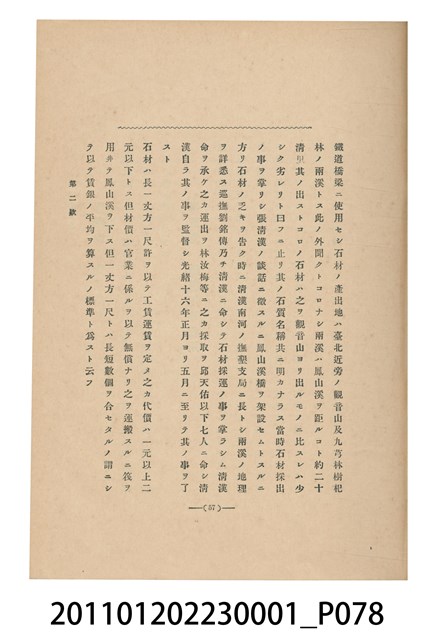 鐵道橋梁ニ使用セシ石材ノ產出地ハ臺北近旁ノ觀音山及九芎林樹杞
林ノ兩溪トス此ノ外聞クトコロナシ兩溪ハ鳳山溪ヲ距ルコト約二十
淸里其ノ出ストコロノ石材ハ之ヲ觀音山ヨリ出ルモノニ比スレハ少
シク劣レリト曰フニ止リ其ノ石質名稱共ニ明カナラス當時石材採出
ノ事ヲ掌リシ張淸漢ノ談話ニ徵スルニ鳳山溪橋ヲ架設セムトスルニ
方リ石材ノ乏キヲ吿ク時ニ淸漢南河ノ撫墾支局ニ長トシ兩溪ノ地理
ヲ詳悉ス巡撫劉銘傳乃チ淸漢ニ命シテ石材採運ノ事ヲ掌ラシム淸漢
命ヲ承ケ之カ運出ヲ林汝梅等ニ之カ採取ヲ邱天佑以下七人ニ命シ淸
漢自ラ其ノ事ヲ監督シ光緖十六年正月ヨリ五月ニ至リテ其ノ事ヲ了
スト
石材ハ長一丈方一尺許ヲ以テ工賃運賃ヲ定メ之カ代價ハ一元以上二
元以下トス但材價ハ官業ニ係ルヲ以テ無償ナリ之ヲ運搬スルニ筏ヲ
用井テ鳳山溪ヲ下ス但一丈方一尺トハ長短數個ヲ合セタルノ謂ニシ
テ以テ賃銀ノ平均ヲ算スルノ標準ト爲スト云フ
第二款
(57)
201101202230001_P078